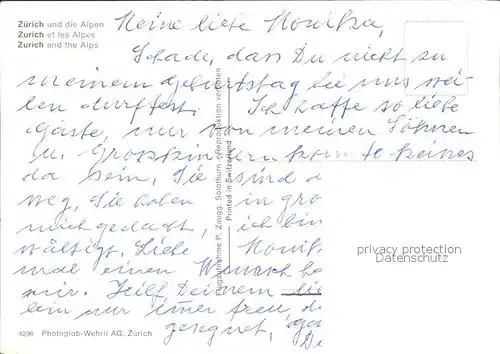 Zürich und die Alpen
Zurich et les Alpes
Zurich and the Alps
Meine liebe Monika,
Schade, dass Du nicht zu
meinem Geburtstag bei uns wei-
len durftest. Ich hatte so liebe
Gäste, nur von meinen Söhnen
u. Grosskindern konnte keines
da sein, Sie sind
weg, Sie haben in gro
mich gedacht, ich bin
wältigt. Liebe Monik
mal einen Wunsch ha
mir. Deinem lie
nur immer treu, d
gesegnet,
De
Flugaufnahme P. Zaugg, Solothurn Reproduktion verboten
Printed in Switzerland
privacy protection
Datenschutz
4296 Photoglob-Wehrli AG, Zürich